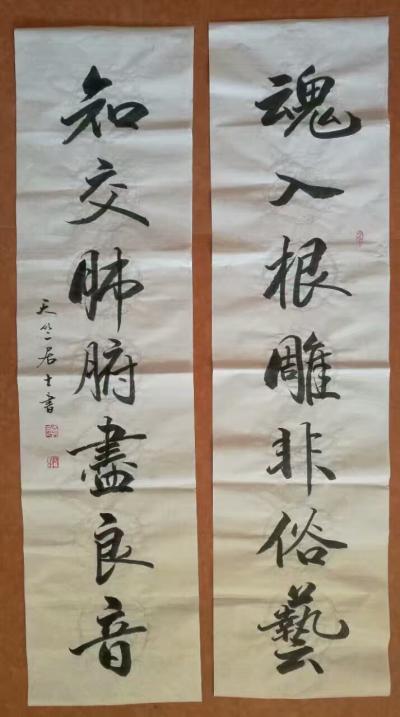 魂入根雕非俗藝
知交肺腑盡良音
天竺居士書